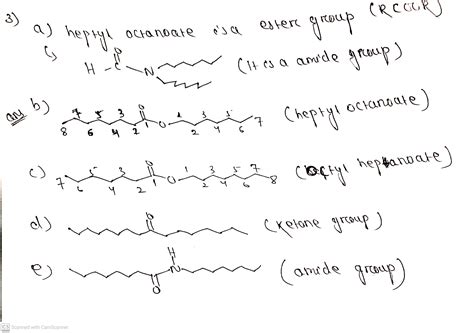 3) a) heptyl octanoate is a ester group (RCOOR)
H - C - N (It is a amide group)
O
ans b) 8 7 6 5 4 3 2 1 O O 1 2 3 4 5 6 7 (heptyl octanoate)
c) 7 6 5 4 3 2 1 O O 1 2 3 4 5 6 7 8 (octyl heptanoate)
d) O (Ketone group)
e) H N O (amide group)
CS Scanned with CamScanner